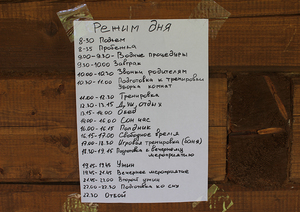 Режим дня
8-30 Подъем
8-35 Пробежка
9.00-9.30- Водные процедуры
9.30-10.00 Завтрак
10.00-10.30 Звонки родителям
10.30-11.00 Подготовка к тренировке
Уборка комнат
11.00-12.30 Тренировка
12.30-13.15 Душ, отдых
13.15-14.00 Обед
14.00-16.00 Сон час
16.00-16.15 Полдник
16.15-17.00 Свободное время
17.00-18.30 Игровая тренировка (баня)
18.30-19.15 Подготовка к вечернему
мероприятию
19.15-19.45 Ужин
19.45-21.45 Вечернее мероприятие
21.45-22.00 Второй ужин
22.00-22.30 Подготовка ко сну
22.30 Отбой